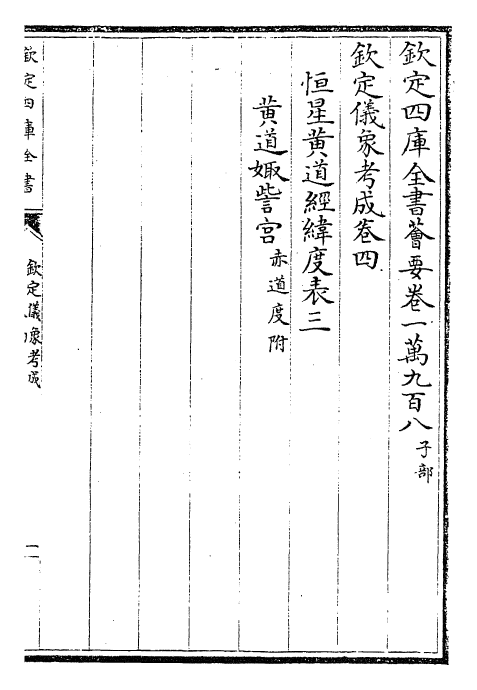 欽定四庫全書薈要卷一萬九百八 子部
欽定儀象考成卷四
恒星黃道經緯度表三
黃道娵訾宮 赤道度附
欽定四庫全書
欽定儀象考成
一